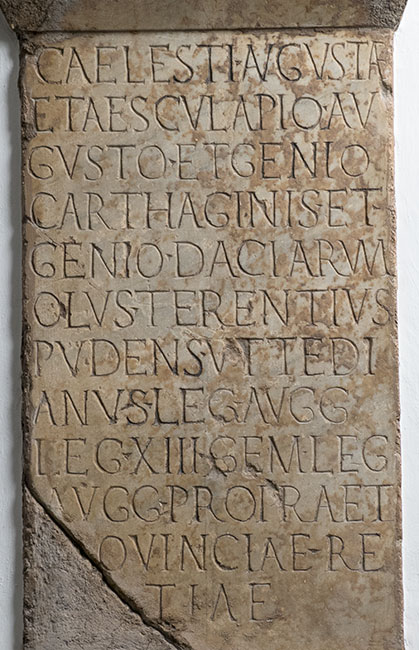 CAELESTI·AVGVSTA
ETAESCVLAPIO·AV
GVSTO·ETGENIO
CARTHAGINIS·ET
GENIO·DACIARVM
OLVS·TERENTIVS
PVDENSVTTEDI
ANVS·LEG·AVGG
LEG·XIII·GEM·LEG
AVGG·PROPRAET
OVINCIAE·RE
TIAE